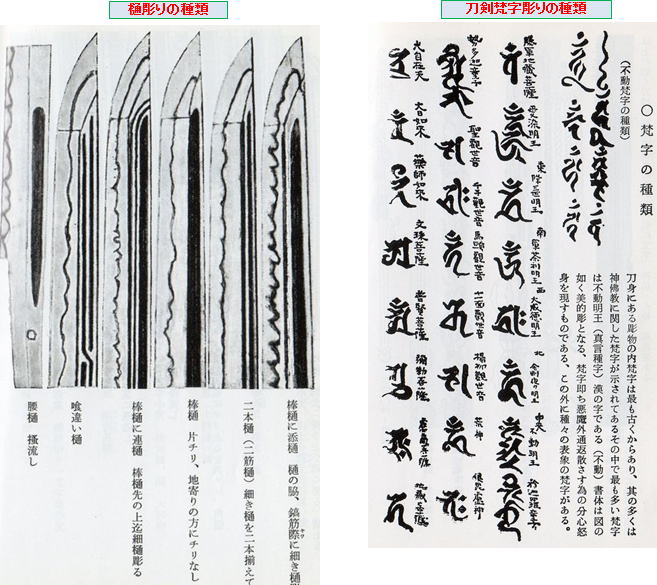 樋彫りの種類
棒樋に添樋 樋の脇、鎬筋際に細き樋
二本樋(二筋樋)細き樋を二本揃えて
棒樋 片チリ、地寄りの方にチリなし
棒樋に連樋 棒樋先の上迄細樋彫る
喰違い樋
腰樋 掻流し
刀剣梵字彫りの種類
〇梵字の種類
(不動梵字の種類)
刀身にある彫物の内梵字は最も古くからあり、其の多くは
神佛教に関した梵字が示されてあるその中で最も多い梵字
は不動明王(真言種字)漢の字である(不動)書体は図の
如く美的彫となる、梵字即ち悪魔外通返散さす為の分心怒
身を現すものである、この外に種々の表象の梵字がある。
勝軍地蔵菩薩
愛染明王
東
南
西
大威徳明王
北
中央 不動明王
勢多迦童子
聖観世音
千手観世音
馬頭観世音
十一面観世音
楊柳観世音
荒神
大自在天
大日如来
薬師如来
文珠菩薩
普賢菩薩
弥勒菩薩
地蔵菩薩